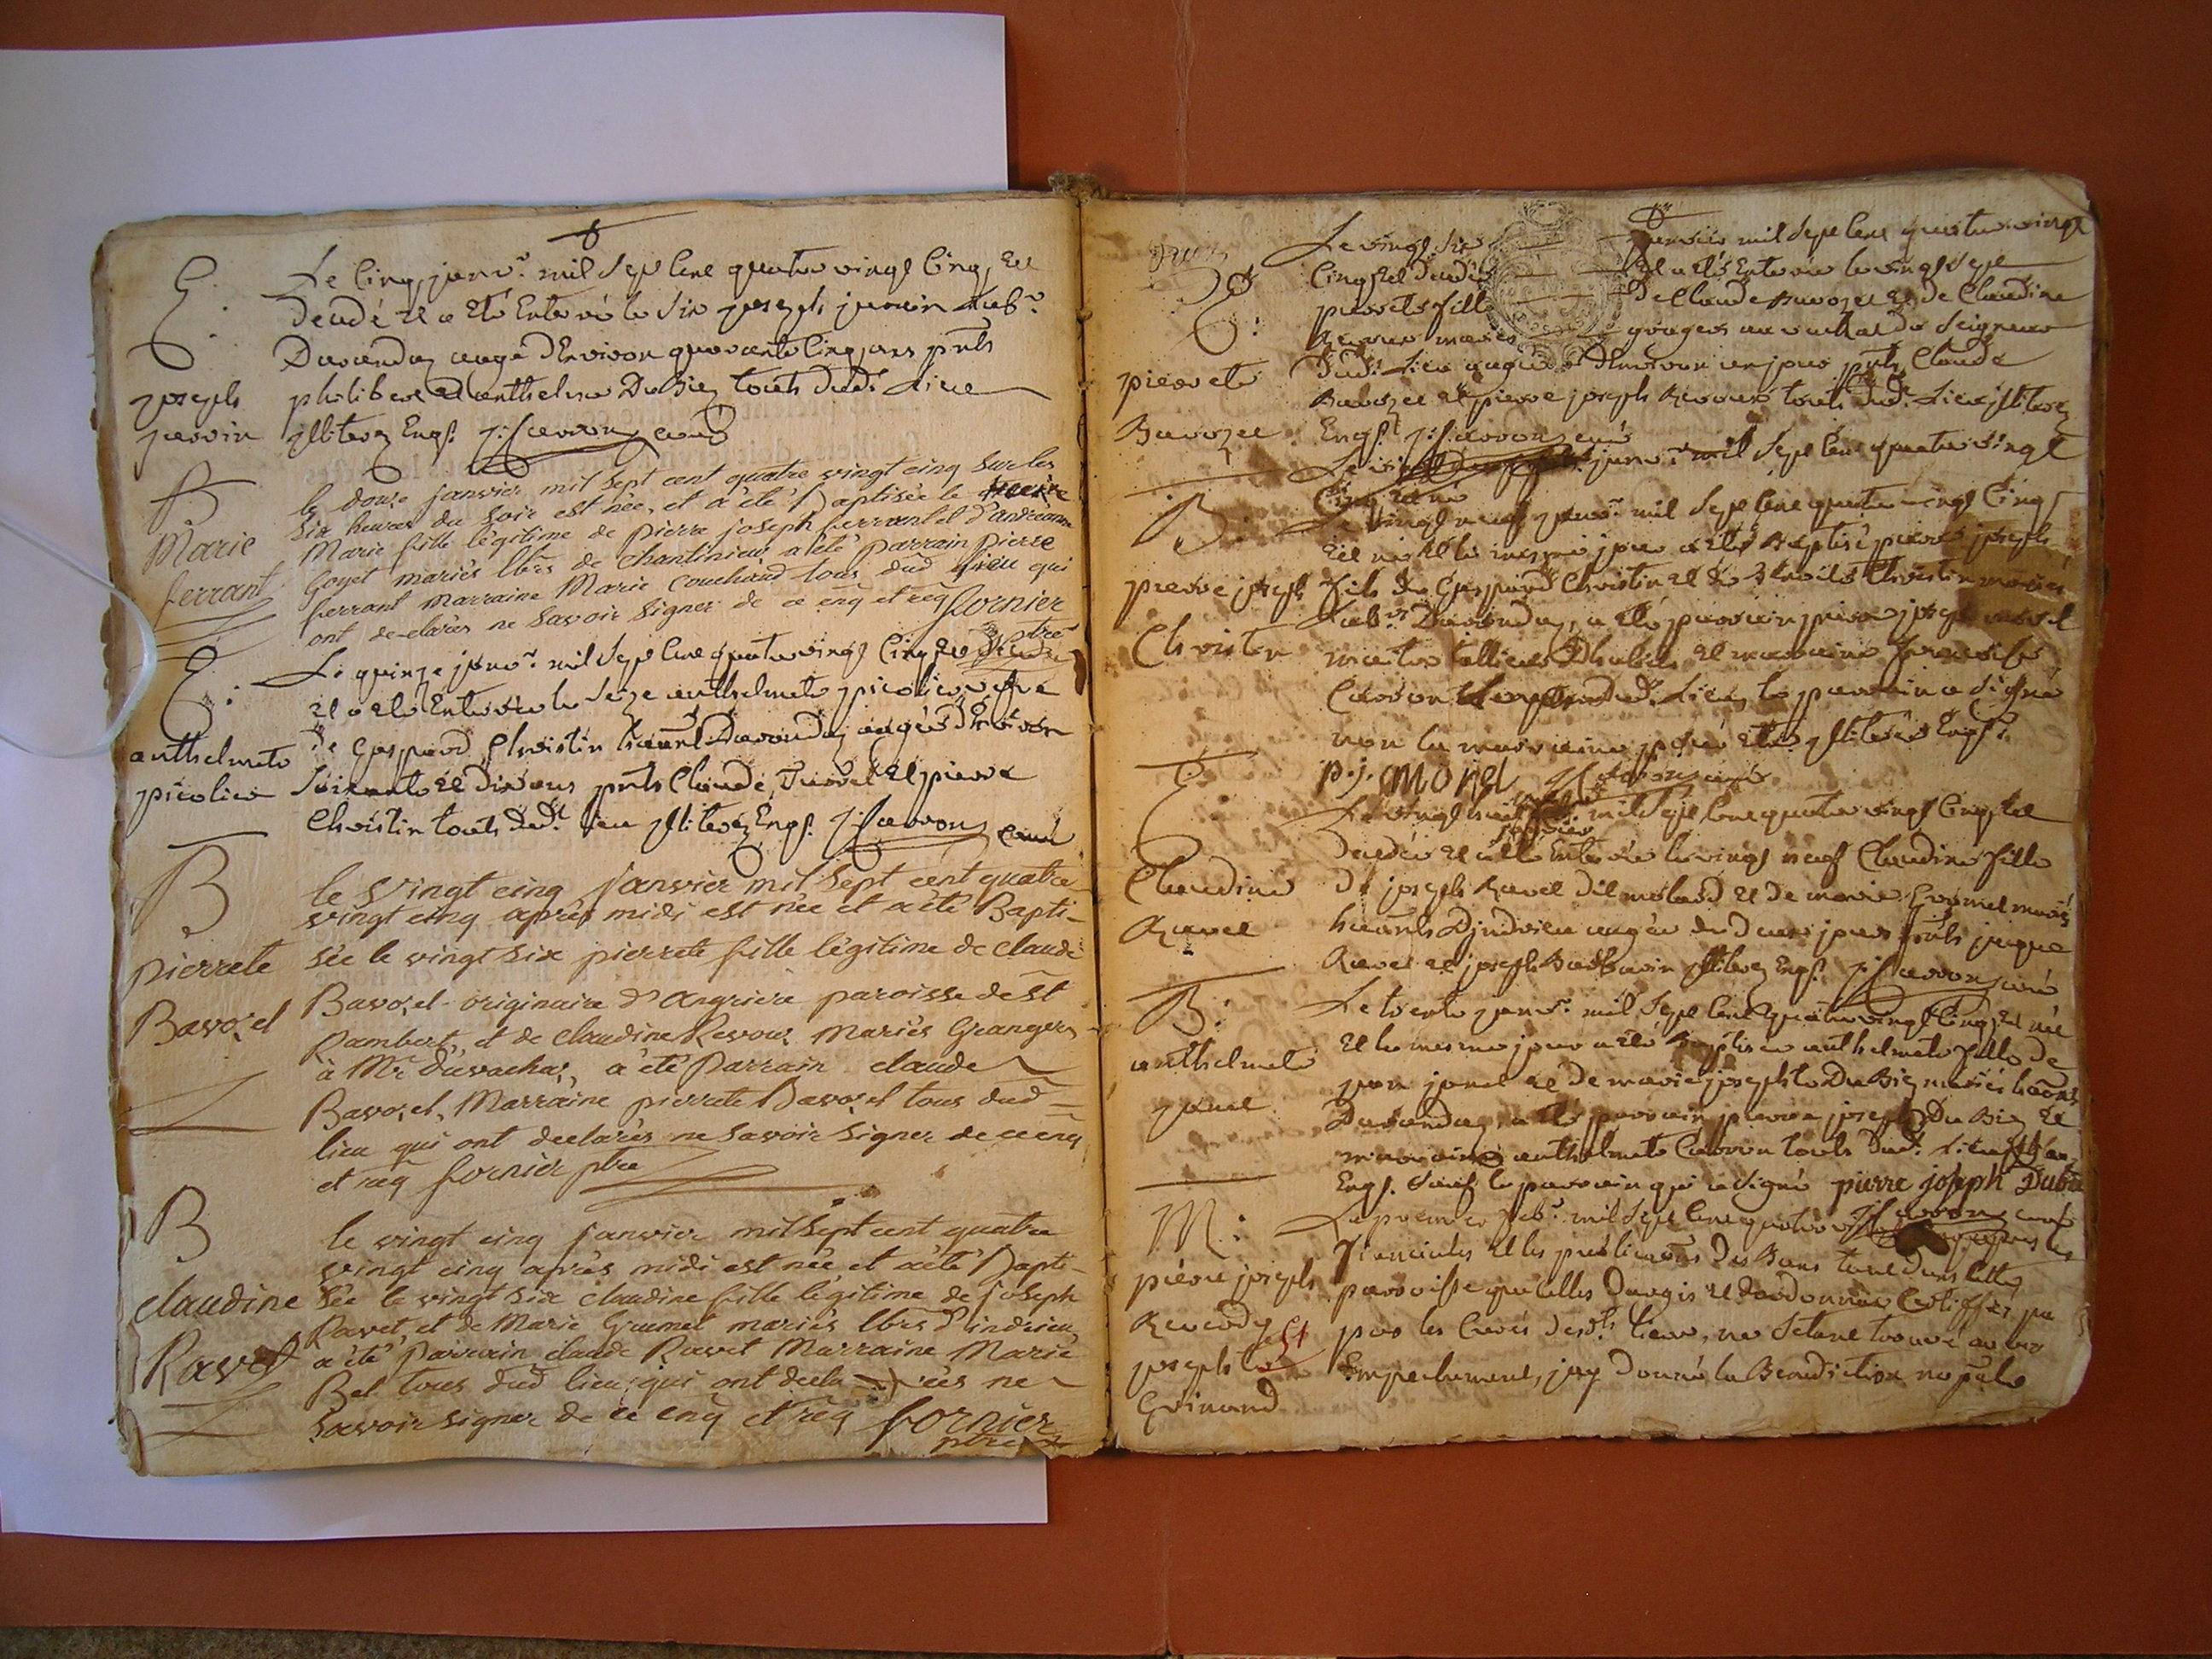 E.
joseph
janin
Le cinq janv.r mil sept cent quatre vingt cinq, est
decedé et a eté enterré le six joseph janin lab.r
Davanday aagé d'environ quarante cinq ans pnts
philibert et anthelme Dubiez touts dud.t lieu
jlliterez enqs. curé
B
Marie
ferrant
le douze janvier mil sept cent quatre vingt cinq sur les
six heures du soir est née, et a été Baptisée le treize
Marie fille légitime de pierre joseph ferrant et d'antéanne
Goyet mariés lbrs de chantinieu a été parrain pierre
ferrant Marraine Marie couchaud tous dud lieu qui
ont declarés ne savoir signer de ce enq et req fornier
ptre
E.
anthelmete
picolier
Le quinze janv.r mil sept cent quatre vingt cinq est decedée
et a eté enterrée le seize anthelmete picolier vefve
de Gaspard Christin Davanday aagée d'environ
soixante et dix ans pnts Claude et pierre
Christin touts dud.t lieu jlliterez enqs. curé
B
pierrete
Bavozet
le vingt cinq janvier mil sept cent quatre
vingt cinq après midi est née et a été Bapti-
sée le vingt six pierrete fille légitime de claude
Bavozet originaire d'angriere paroisse de St
Rambert, et de claudine Revoux mariés Grangers
à Mr duvachat, a été Parrain claude
Bavozet, Marraine pierrete Bavozet tous dud
lieu qui ont declarés ne savoir signer de ce enq
et req fornier ptre
B
claudine
Ravet
le vingt cinq janvier mil sept cent quatre
vingt cinq après midi est née et a été Bapti-
sée le vingt six claudine fille légitime de joseph
Ravet, et de Marie Grumet mariés lbrs d'indrieu
a été parrain claude Ravet Marraine Marie
Bel tous dud lieu qui ont declarés ne
savoir signer de ce enq et req fornier
ptre
E.
pierrete
Bavozet
Le vingt six janvier mil sept cent quatre vingt
cinq est decedée et a eté enterrée le vingt sept
pierrete fille de Claude Bavozet et de Claudine
Revoux mariés grangers du Seigneur
dud.t lieu aagée d'environ un jour pnts Claude
Bavozet et pierre joseph Revoux touts dud.t lieu jlliterez
enqs.t curé
janv.r mil sept cent quatre vingt
cinq est né
B.
pierre joseph
Christin
Le vingt neuf janv.r mil sept cent quatre vingt cinq
est né et le mesme jour a eté Baptisé pierre joseph
fils de Gaspard Christin et de Christin mariés
lab.rs Davanday, a eté parrain pierre joseph morel
maitre tallieur et marraine francoise
Carron dud.t lieu, le parrain a signé
non la marraine pour etre jlliterée enqs.
p.j. MOREL curé
E.
Claudine
Ravet
Le vingt huit janvier mil sept cent quatre vingt cinq est
decedée et a eté enterrée le vingt neuf Claudine fille
de joseph Ravet dit molard et de marie Grumel mariés
Djndrieu aagée de deux jours pnts jaque
Ravet et joseph Barbarin jlliterez enqs. curé
B.
anthelmete
janel
Le trente janv.r mil sept cent quatre vingt cinq, est née
et le mesme jour a eté Baptisée anthelmete fille de
jean janel et de marie josephte Dubiez mariés
Davanday a eté parrain pierre joseph Dubiez et
marraine anthelmete Carron touts dud.t lieu
enqs. sauf le parrain qui a signé pierre joseph Dubie
curé
M.
pierre joseph
Revendy
josephte
Grinand
Le premier feb.r mil sept cent quatre vingt cinq apres les
fiancailes et les publications des Bans tant dans cette
paroisse que celles Dargis et dordonnaz Certiffiées
par les Curés desd.ts lieux, ne s'etant trouvé aucun
Empechement, jay donné la Benediction nuptiale